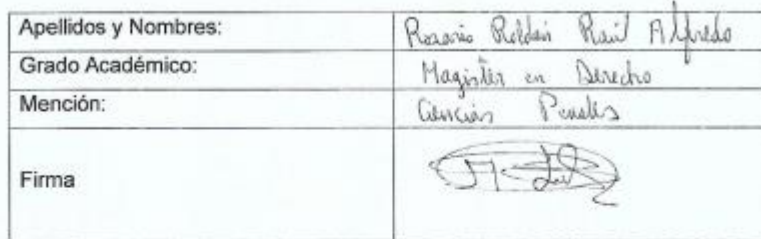 Apellidos y Nombres: Rosario Roldán Raúl Alfredo
Grado Académico: Magister en Derecho
Mención: Ciencias Penales
Firma